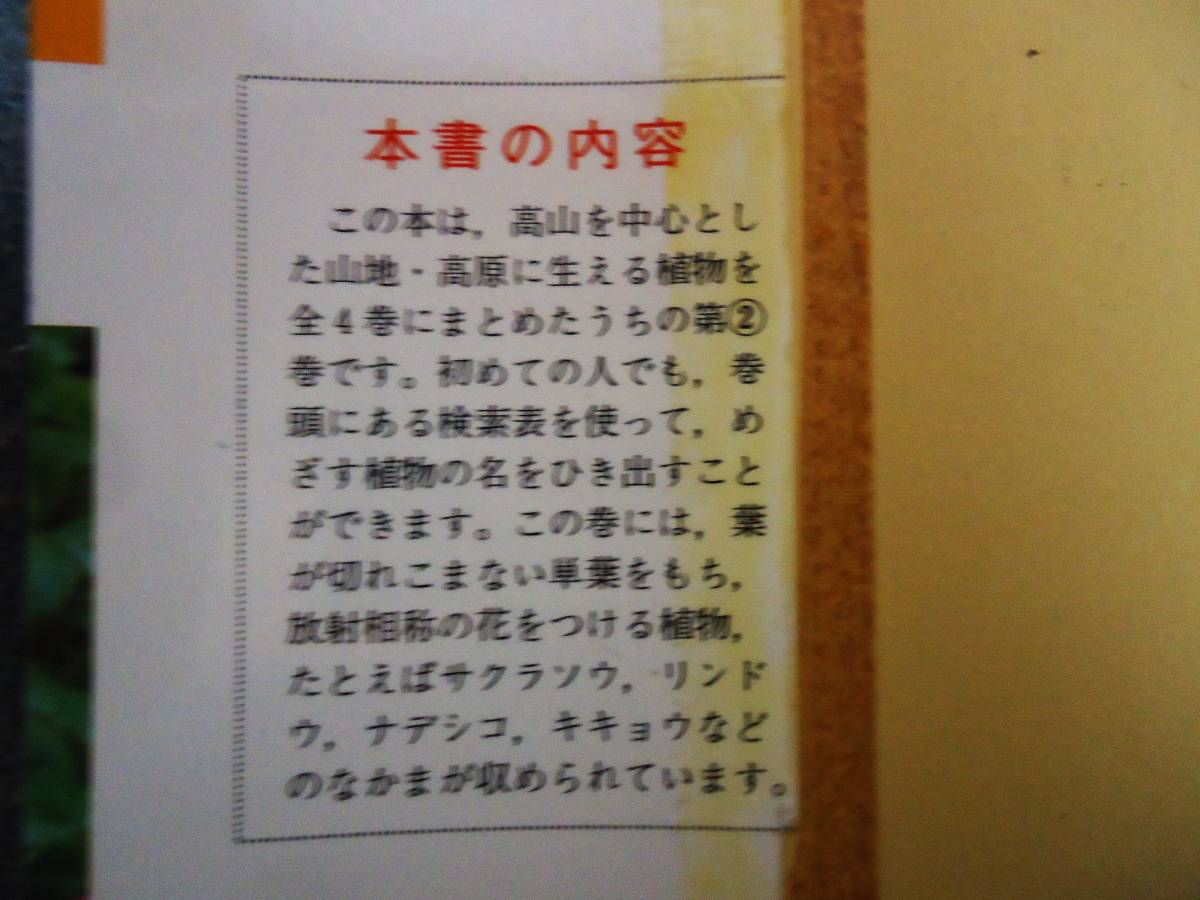 本書の内容
この本は，高山を中心とし
た山地・高原に生える植物を
全4巻にまとめたうちの第②
巻です。初めての人でも，巻
頭にある検索表を使って，め
ざす植物の名をひき出すこと
ができます。この巻には，葉
が切れこまない単葉をもち，
放射相称の花をつける植物，
たとえばサクラソウ，リンド
ウ，ナデシコ，キキョウなど
のなかまが収められています。